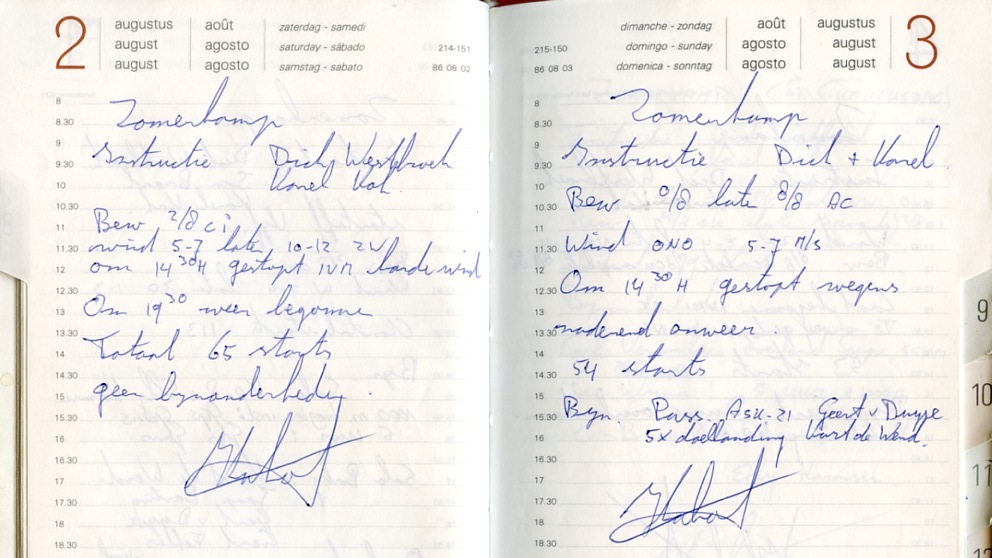 2
augustus août zaterdag - samedi
august agosto saturday - sàbado 214-151
august agosto samstag - sabato 86 08 02
8
8.30
9
9.30
10
10.30
11
11.30
12
12.30
13
13.30
14
14.30
15
15.30
16
16.30
17
17.30
18
18.30
Zomerkamp
Instructie Dick Westbroek
Karel Kok.
Bew 2/8 ci
wind 5-7 later 10-12 ZW
om 14 30 H gestopt IVM harde wind
Om 19 30 weer begonnen
Totaal 65 starts
geen byzonderheden.
dimanche - zondag août augustus
215-150 domingo - sunday agosto august
86 08 03 domenica - sonntag agosto august
3
8
8.30
9
9.30
10
10.30
11
11.30
12
12.30
13
13.30
14
14.30
15
15.30
16
16.30
17
17.30
18
18.30
Zomerkamp
Instructie Dick + Karel.
Bew 0/8 later 8/8 AC
Wind ONO 5-7 M/s
Om 14 30 H gestopt wegens
naderend onweer.
54 starts
Byz. Pass. ASK-21 Geert v Duyse
5x doellanding Kurt de Wend.
9
10
11
12